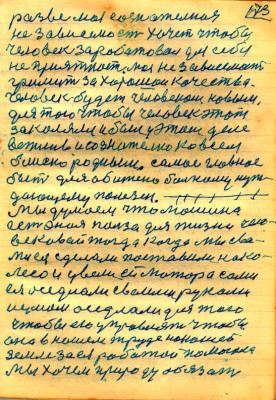 173
разве моя сознателная
не зависемость хочет чтобы
человек заработовал для себя
не приятность. моя не зависемость
гремит за хорошои качества.
Человек будет человеком новым,
для того чтобы человек этот
закалял и был у этом деле
вежлив и сознателно ко всем
близко родным. самое главное
быть для обижено болному нуж-
дающему полезн.
Мы думаем что машина
есть она полза для жизни чело-
вековай тогда когда мы ева
мы ее сделали поставили на ко-
лесо и увели ей мотора сами
ея оседлали своими руками
и умом оседлали для того
чтобы ею управлять чтобы
она в нашем труде на нашей
земле за ея работай помогла
мы хочем природу обязать